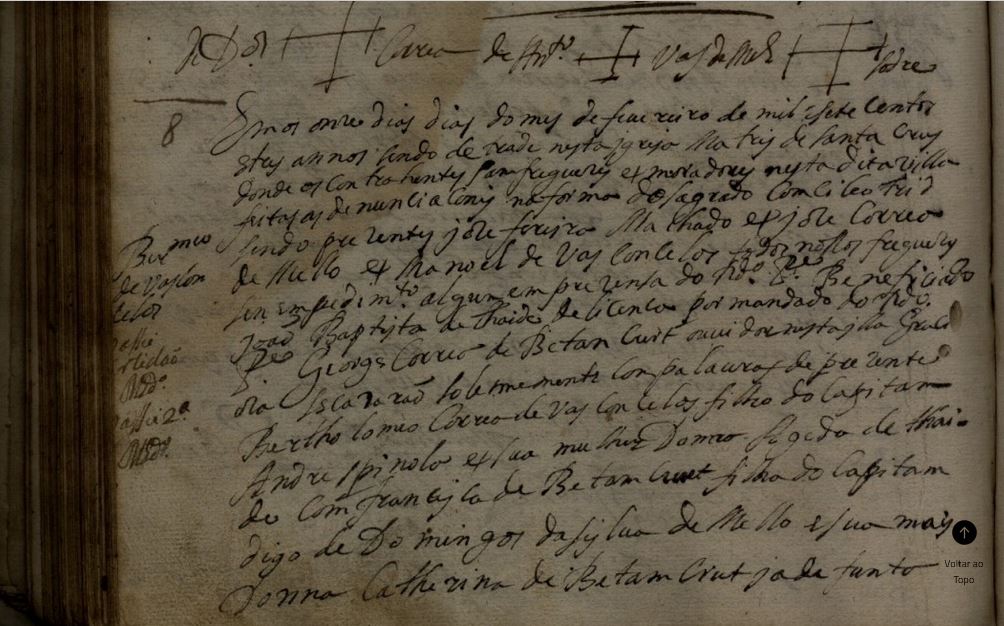 Correa de Ant.º Vas de Mello
8
Em os onze dias dias do mes de feuereiro de mil e sete Centos
e tres annos sendo de tarde nesta igreja Matris de santa Crus
donde os Contrahentes sam fregueses e moradores nesta dita villa
feitas as denunciacoins na forma do sagrado Concileo trid
sendo prezentes joze foreiro Machado e joze Correa
de Mello e Manoel de Vas Con Celos todos nossos fregueses
sen empedim.to algum em prezensa do Rdo. P.e Beneficiado
joaõ Baptista de thaide de licenca por mandado do Rdo.
P.e George Correa de Betan Curt ouuidor nesta jlha Graci
oza se cazaraõ solemnemente Com palauras de prezente
Bertholomeo Correa de Vas Con Celos filho do Capitam
Andre spinola e sua mulher Domea Ageda de thai-
de Com francisca de Betam Curt filha do Capitam
digo de Domingos da sylua de Mello e sua maj
Donna Catherina de Betam Crut ja defunto
Ber meo
de Vascon
celos
Voltar ao
Topo